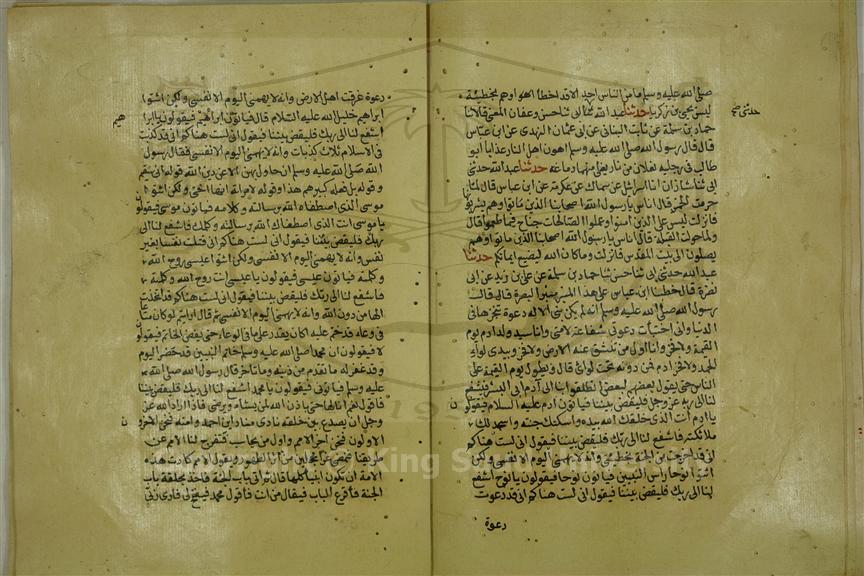 صلى الله عليه وسلم ما من الناس احد الا قد اخطأ او هم بخطيئة
ليس يحيى بن زكريا حدثنا عبد الله حدثني ابي ثنا حسن وعفان المعنى قالا ثنا
حماد بن سلمة عن ثابت البناني عن ابي عثمان النهدي عن ابن عباس
قال قال رسول الله صلى الله عليه وسلم اهون اهل النار عذابا ابو
طالب في رجليه نعلان من نار يغلي منهما دماغه حدثنا عبد الله حدثني
ابي ثنا شاذان انا اسرائيل عن سماك عن عكرمة عن ابن عباس قال لما
حرمت الخمر قال اناس يا رسول الله اصحابنا الذين ماتوا وهم يشربونها
فانزلت ليس على الذين آمنوا وعملوا الصالحات جناح فيما طعموا قال
ولما حولت القبلة قال اناس يا رسول الله اصحابنا الذين ماتوا وهم
يصلون الى بيت المقدس فانزلت وما كان الله ليضيع ايمانكم حدثنا
عبد الله حدثني ابي ثنا حسن ثنا حماد بن سلمة عن علي بن زيد عن ابي
نضرة قال خطبنا ابن عباس على هذا المنبر منبر البصرة قال قال
رسول الله صلى الله عليه وسلم انه لم يكن نبي الا له دعوة تنجزها في
الدنيا واني اختبأت دعوتي شفاعة لامتي وانا سيد ولد ادم يوم
القيمة ولا فخر وانا اول من تنشق عنه الارض ولا فخر وبيدي لواء
الحمد ولا فخر ادم فمن دونه تحت لوائي قال ويطول يوم القيمة على
الناس حتى يقول بعضهم لبعض انطلقوا بنا الى آدم ابي البشر فيشفع
لنا الى ربه عز وجل فليقض بيننا فيأتون ادم عليه السلام فيقولون
يا ادم انت الذي خلقك الله بيده واسكنك جنته واسجد لك
ملائكته فاشفع لنا الى ربك فليقض بيننا فيقول اني لست هناكم
اني قد اخرجت من الجنة بخطيئتي وانه لا يهمني اليوم الا نفسي ولكن
ائتوا نوحا راس النبيين فيأتون نوحا فيقولون يا نوح اشفع
لنا الى ربك فليقض بيننا فيقول اني لست هناكم اني قد دعوت
دعوة
دعوة غرقت اهل الارض وانه لا يهمني اليوم الا نفسي ولكن ائتوا
ابراهيم خليل الله عليه السلام قال فيأتون ابراهيم فيقولون يا ابراهيم
اشفع لنا الى ربك فليقض بيننا فيقول اني لست هناكم اني قد كذبت
في الاسلام ثلاث كذبات وانه لا يهمني اليوم الا نفسي فقال رسول
الله صلى الله عليه وسلم ان حاول بهن الا عن دين الله قوله اني سقيم
وقوله بل فعله كبيرهم هذا وقوله لامرأته انها اختي ولكن ائتوا
موسى الذي اصطفاه الله برسالته وكلامه فيأتون موسى فيقولون
يا موسى انت الذي اصطفاك الله برسالته وكلمك فاشفع لنا الى
ربك فليقض بيننا فيقول اني لست هناكم اني قتلت نفسا بغير
نفس وانه لا يهمني اليوم الا نفسي ولكن ائتوا عيسى روح الله
وكلمته فيأتون عيسى فيقولون يا عيسى انت روح الله وكلمته
فاشفع لنا الى ربك فليقض بيننا فيقول اني لست هناكم قد اتخذت
الها من دون الله وانه لا يهمني اليوم الا نفسي ثم قال ارايتم لو كان متاع
في وعاء قد ختم عليه اكان يقدر على ما في الوعاء حتى يفض الخاتم فيقولون
لا فيقول ان محمدا صلى الله عليه وسلم خاتم النبيين قد حضر اليوم
وقد غفر له ما تقدم من ذنبه وما تأخر قال رسول الله صلى الله
عليه وسلم فيأتوني فيقولون يا محمد اشفع لنا الى ربك فليقض بيننا
فاقول نعم انا لها حتى ياذن الله لمن يشاء ويرضى فاذا اراد الله عز
وجل ان يصدع بين خلقه نادى مناد اين احمد وامته فنحن الآخرون
الاولون فنحن اخر الامم واول من يحاسب فتفرج لنا الامم عن
طريقنا فنمضي غرا محجلين من اثر الطهور ويقول الامم كادت هذه
الامة ان تكون انبياء كلها قال ثم اتي باب الجنة فاخذ بحلقة باب
الجنة فأقرع الباب فيقال من انت فاقول محمد فيفتح لي فارى ربي